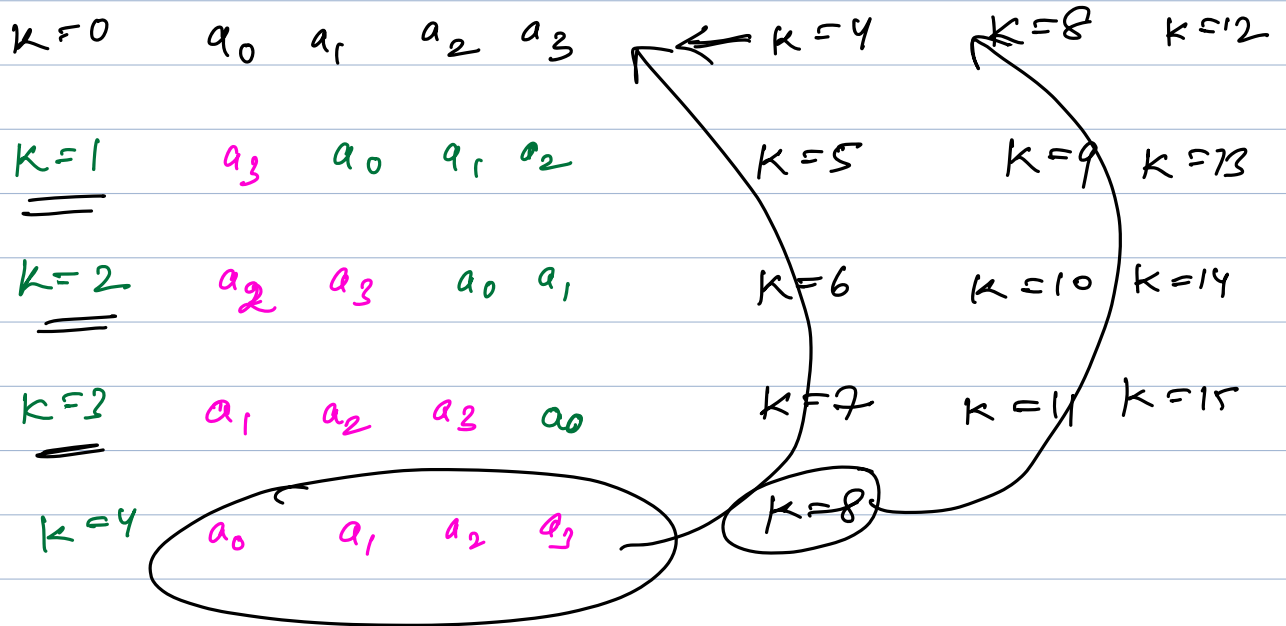 K=0 a0 a1 a2 a3 K=4 K=8 K=12
K=1 a3 a0 a1 a2 K=5 K=9 K=13
K=2 a2 a3 a0 a1 K=6 K=10 K=14
K=3 a1 a2 a3 a0 K=7 K=11 K=15
K=4 a0 a1 a2 a3 K=8